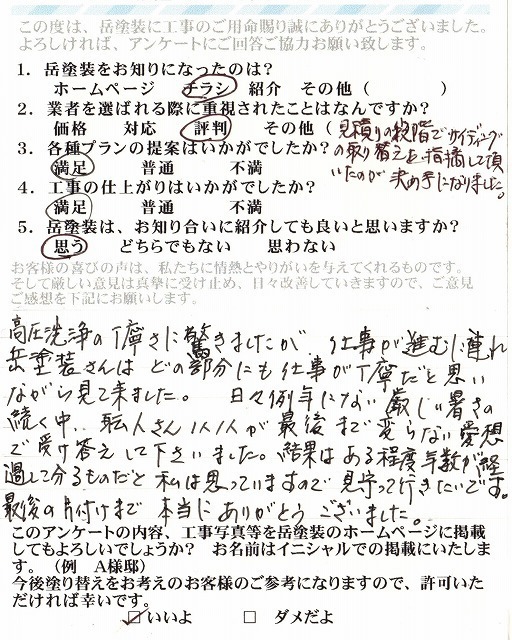 この度は、岳塗装に工事のご用命賜り誠にありがとうございました。
よろしければ、アンケートにご回答ご協力お願い致します。
1．岳塗装をお知りになったのは？
ホームページ　チラシ　紹介　その他（　　　　　）
2．業者を選ばれる際に重視されたことはなんですか？
価格　　対応　　評判　　その他（見積りの段階でサイディング
の取り替えを指摘して頂
いたのが決め手になりました。
3．各種プランの提案はいかがでしたか？
満足　　普通　　不満
4．工事の仕上がりはいかがでしたか？
満足　　普通　　不満
5．岳塗装は、お知り合いに紹介しても良いと思いますか？
思う　　どちらでもない　　思わない
お客様の喜びの声は、私たちに情熱とやりがいを与えてくれるものです。
そして厳しい意見は真摯に受け止め、日々改善していきますので、ご意見
ご感想を下記にお願いします。
高圧洗浄の丁寧さに驚きましたが、仕事が進むに連れ
岳塗装さんは どの部分にも仕事が丁寧だと思い
ながら見て来ました。 日々例年にない厳しい暑さの
続く中、職人さん1人1人が最後まで変らない愛想
で受け答えして下さいました。結果はある程度年数が経
過して分るものだと私は思っていますので見守って行きたいです。
最後の片付けまで本当にありがとうございました。
このアンケートの内容、工事写真等を岳塗装のホームページに掲載
してもよろしいでしょうか？　お名前はイニシャルでの掲載にいたしま
す。（例　A様邸）
今後塗り替えをお考えのお客様のご参考になりますので、許可いた
だければ幸いです。
☑ いいよ　　□ ダメだよ